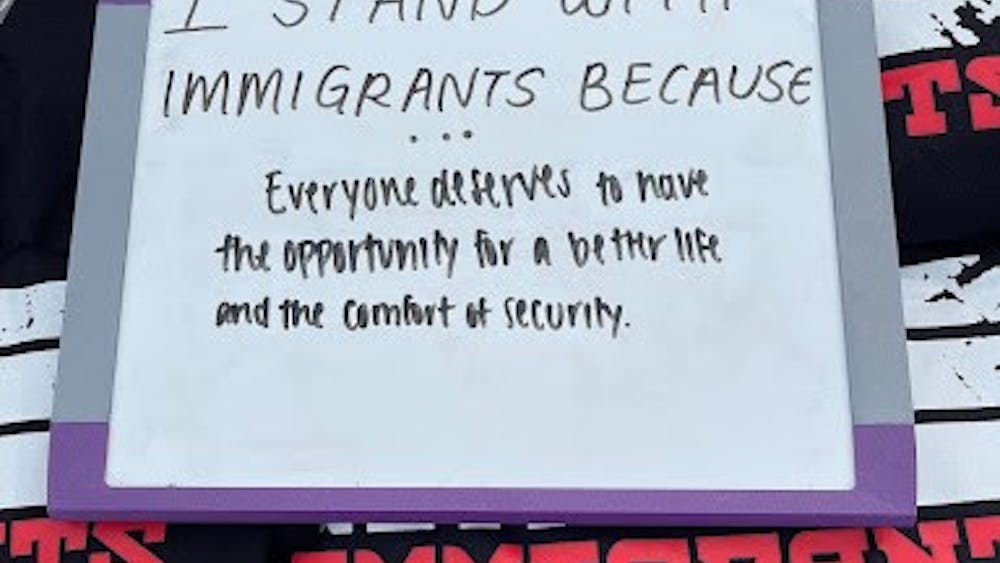 I STAND WITH
IMMIGRANTS BECAUSE
...
Everyone deserves to have
the opportunity for a better life
and the comfort of security.
TS
TS
IMMIGRANT